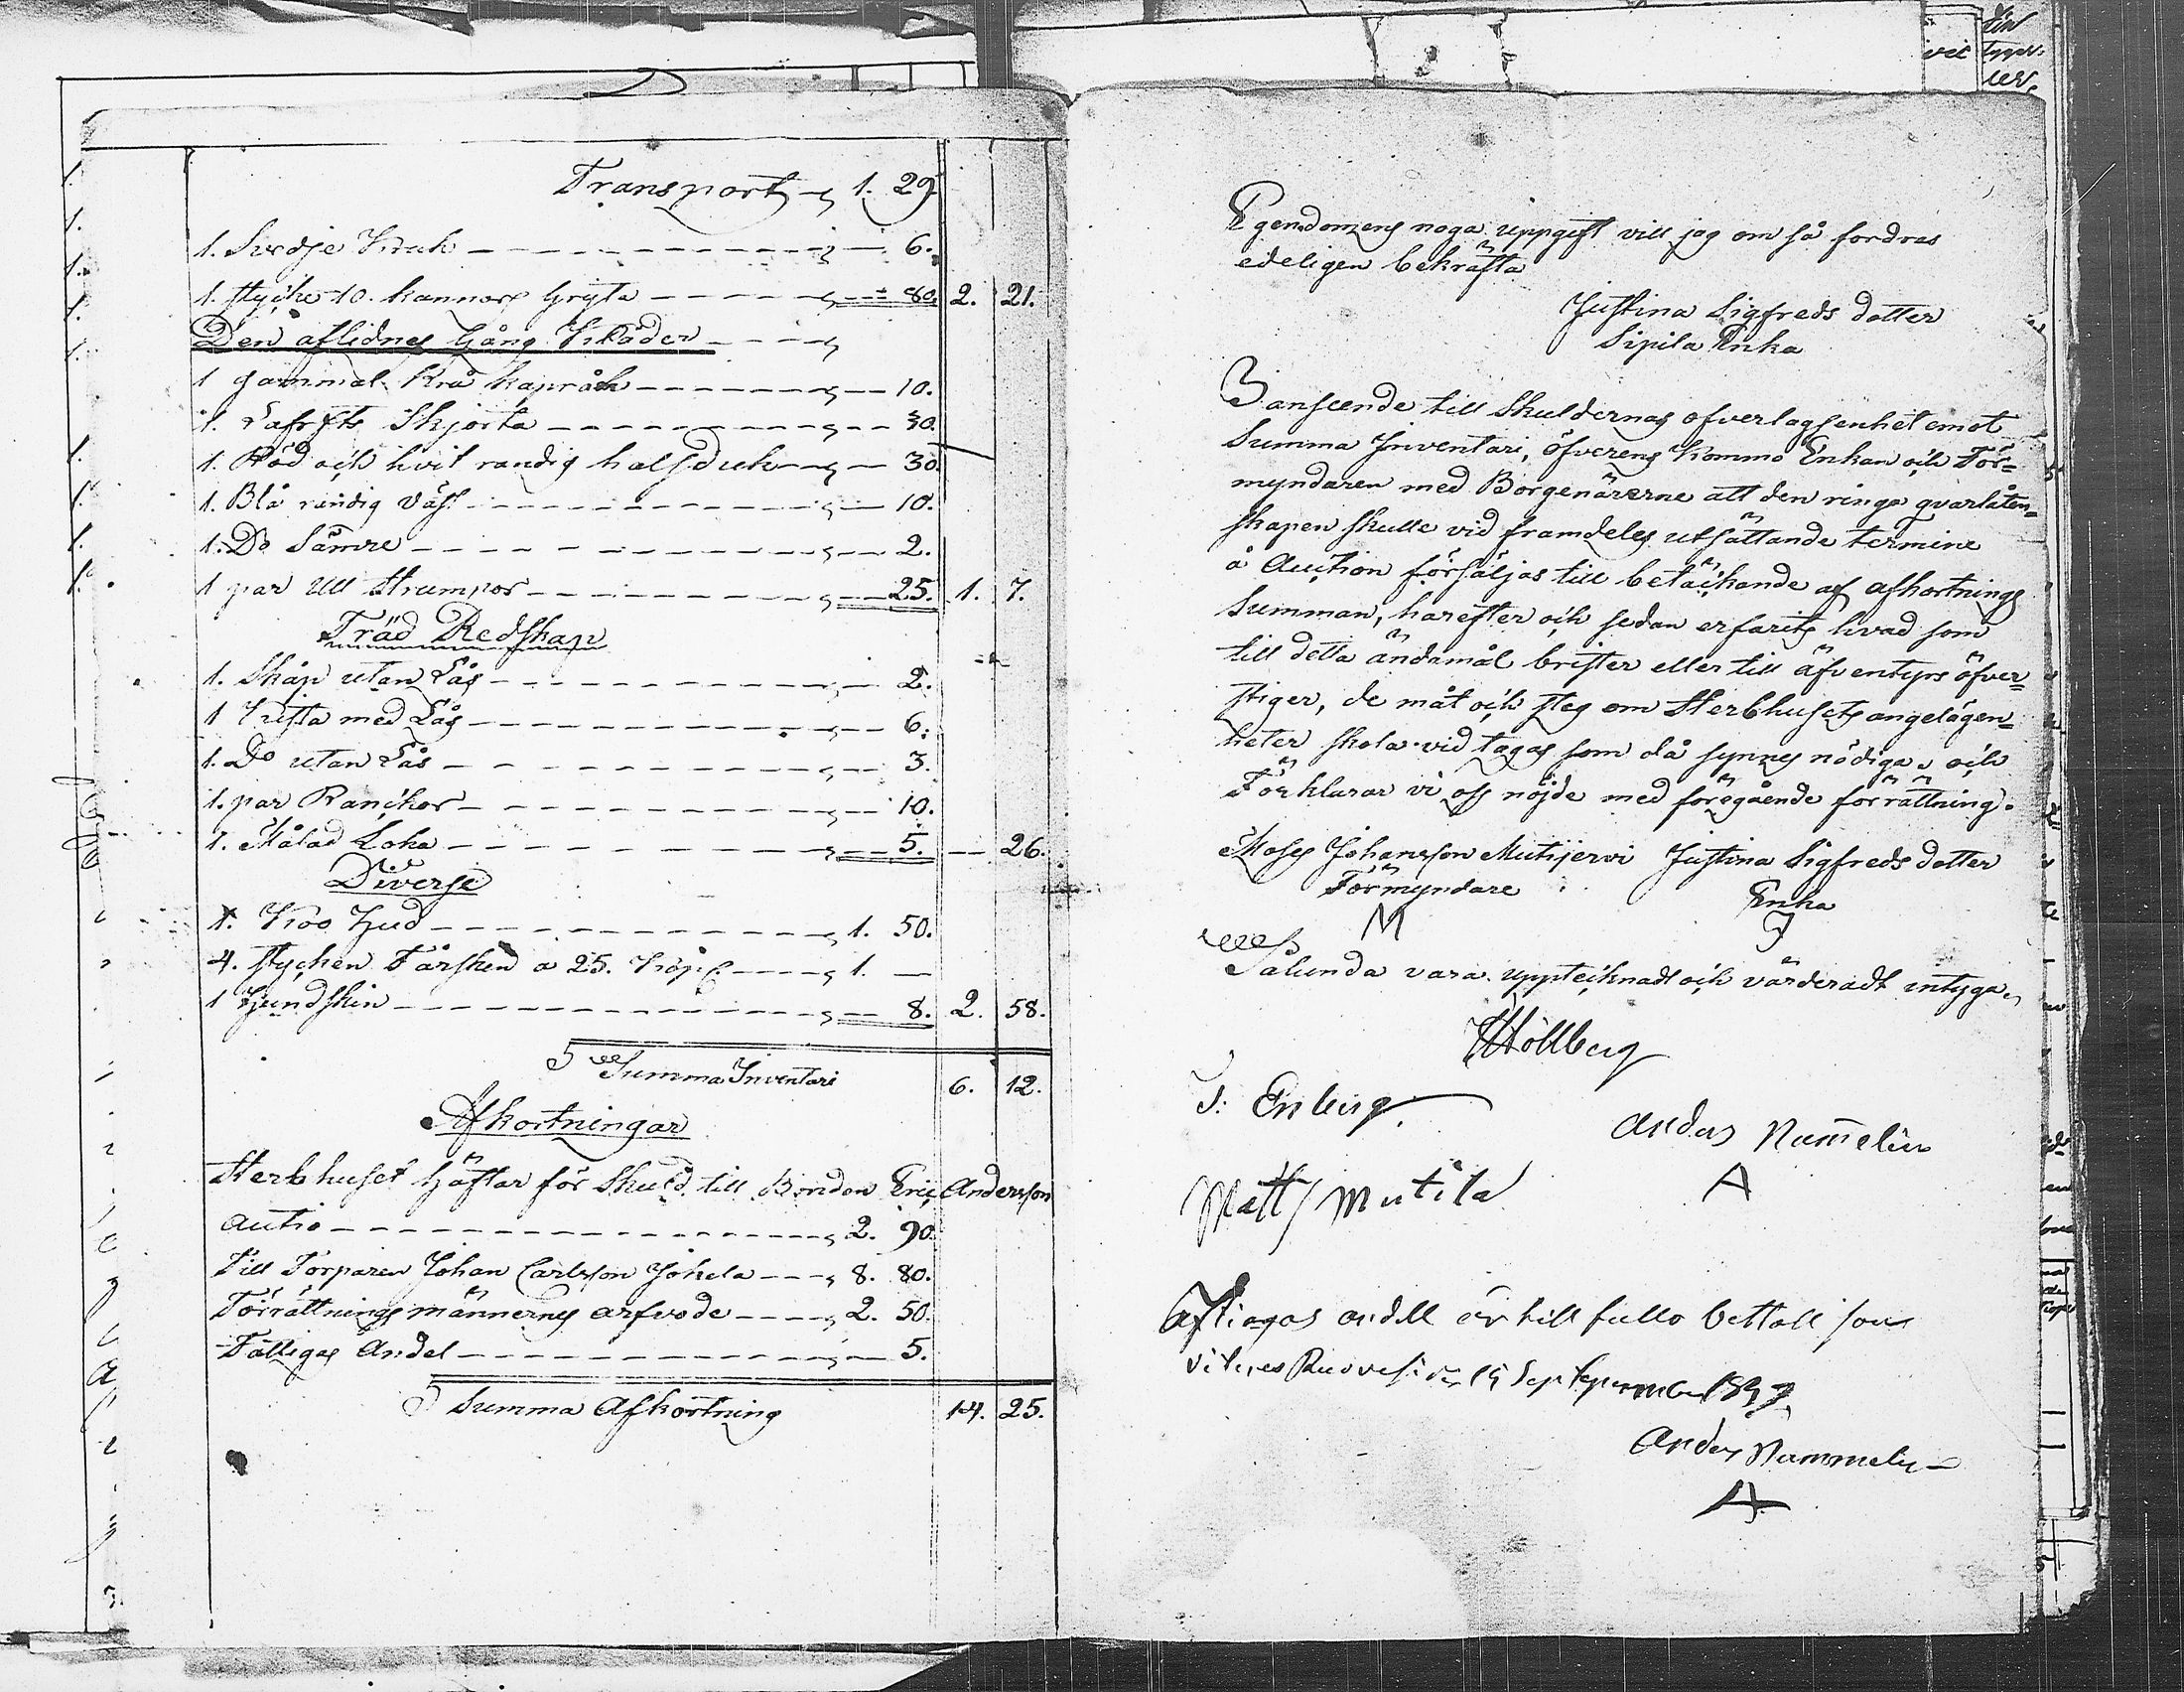 Transport 1. 29.
1. Svedje Krok 6.
1. stycke 10. kannors Gryta 80. 2. 21.
Den aflidnes Gång Kläder
1 gammal Krå kapråck 10.
1. Lafrfts Skjorta 30.
1. Röd och hvit randig halsduk 30.
1. Blå randig Väst 10.
1. Do Sämre 2.
1 par Ull Strumpor 25. 1. 7.
Träd Redskap
1. Skåp utan Lås 2.
1 Kista med Lås 6.
1. Do utan Lås 3.
1. par Ranckor 10.
1. Målad Loka 5. — 26.
Diverse
1. Koo Hud 1. 50.
4. stycken Fårsken a 25. Kop. 1. —
1 Hundskin 8. 2. 58.
Summa Inventari 6. 12.
Afkortningar
Sterbhuset häftar för Skuld till Bonden Eric Andersson
Autio 2. 90.
Till Torparen Johan Carlsson Jokela 8. 80.
Förrättnings männernes arfvode 2. 50.
Fattigas Andel 5.
Summa Afkortning 14. 25.
Egendomens noga uppgift vill jag om så fordras
edeligen bekräfta
Justina Sigfreds dotter
Sipila Enka
I anseende till Skuldernas ofverlägsenhet emot
Summa Inventari, öfverens kommo Enkan och För=
myndaren med Borgenärerne att den ringa qvarlåten=
skapen skulle vid framdeles utsättande termine
å Auction försäljas till betäckande af afkortnings
Summan, harefter och sedan erfarits hvad som
till detta ändamål brister eller till äfventyrs öfver=
stiger, de mått och steg om Sterbhusets angelägen=
heter skola vid tagas som då synnes nödiga, och
Förklarar vi oss nöjde med föregående förrättning.
Moses Johansson Mutijervi Justina Sigfreds dotter
Förmyndare Enka
M J
Sålunda vara upptecknadt och värderadt intyga,
J. Enberg
Anders Nummelin
Matts Mutila A
Aftiogas andell är till fullo bettall som
viteres Ruovesi den 15 September
Anders Nummelin
A